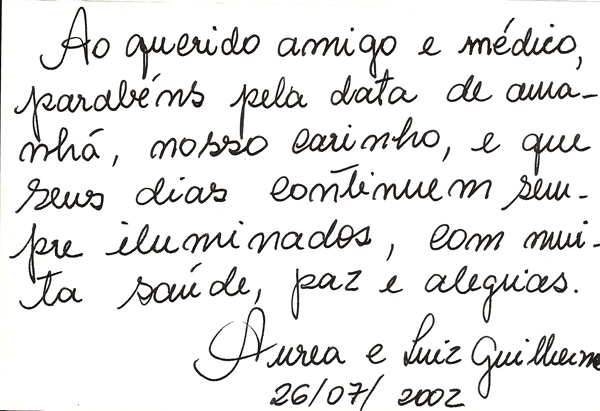 Ao querido amigo e médico,
parabéns pela data de ama-
nhã, nosso carinho, e que
seus dias continuem sem-
pre iluminados, com mui-
ta saúde, paz e alegrias.
Áurea e Luiz Guilherme
26/07/2002